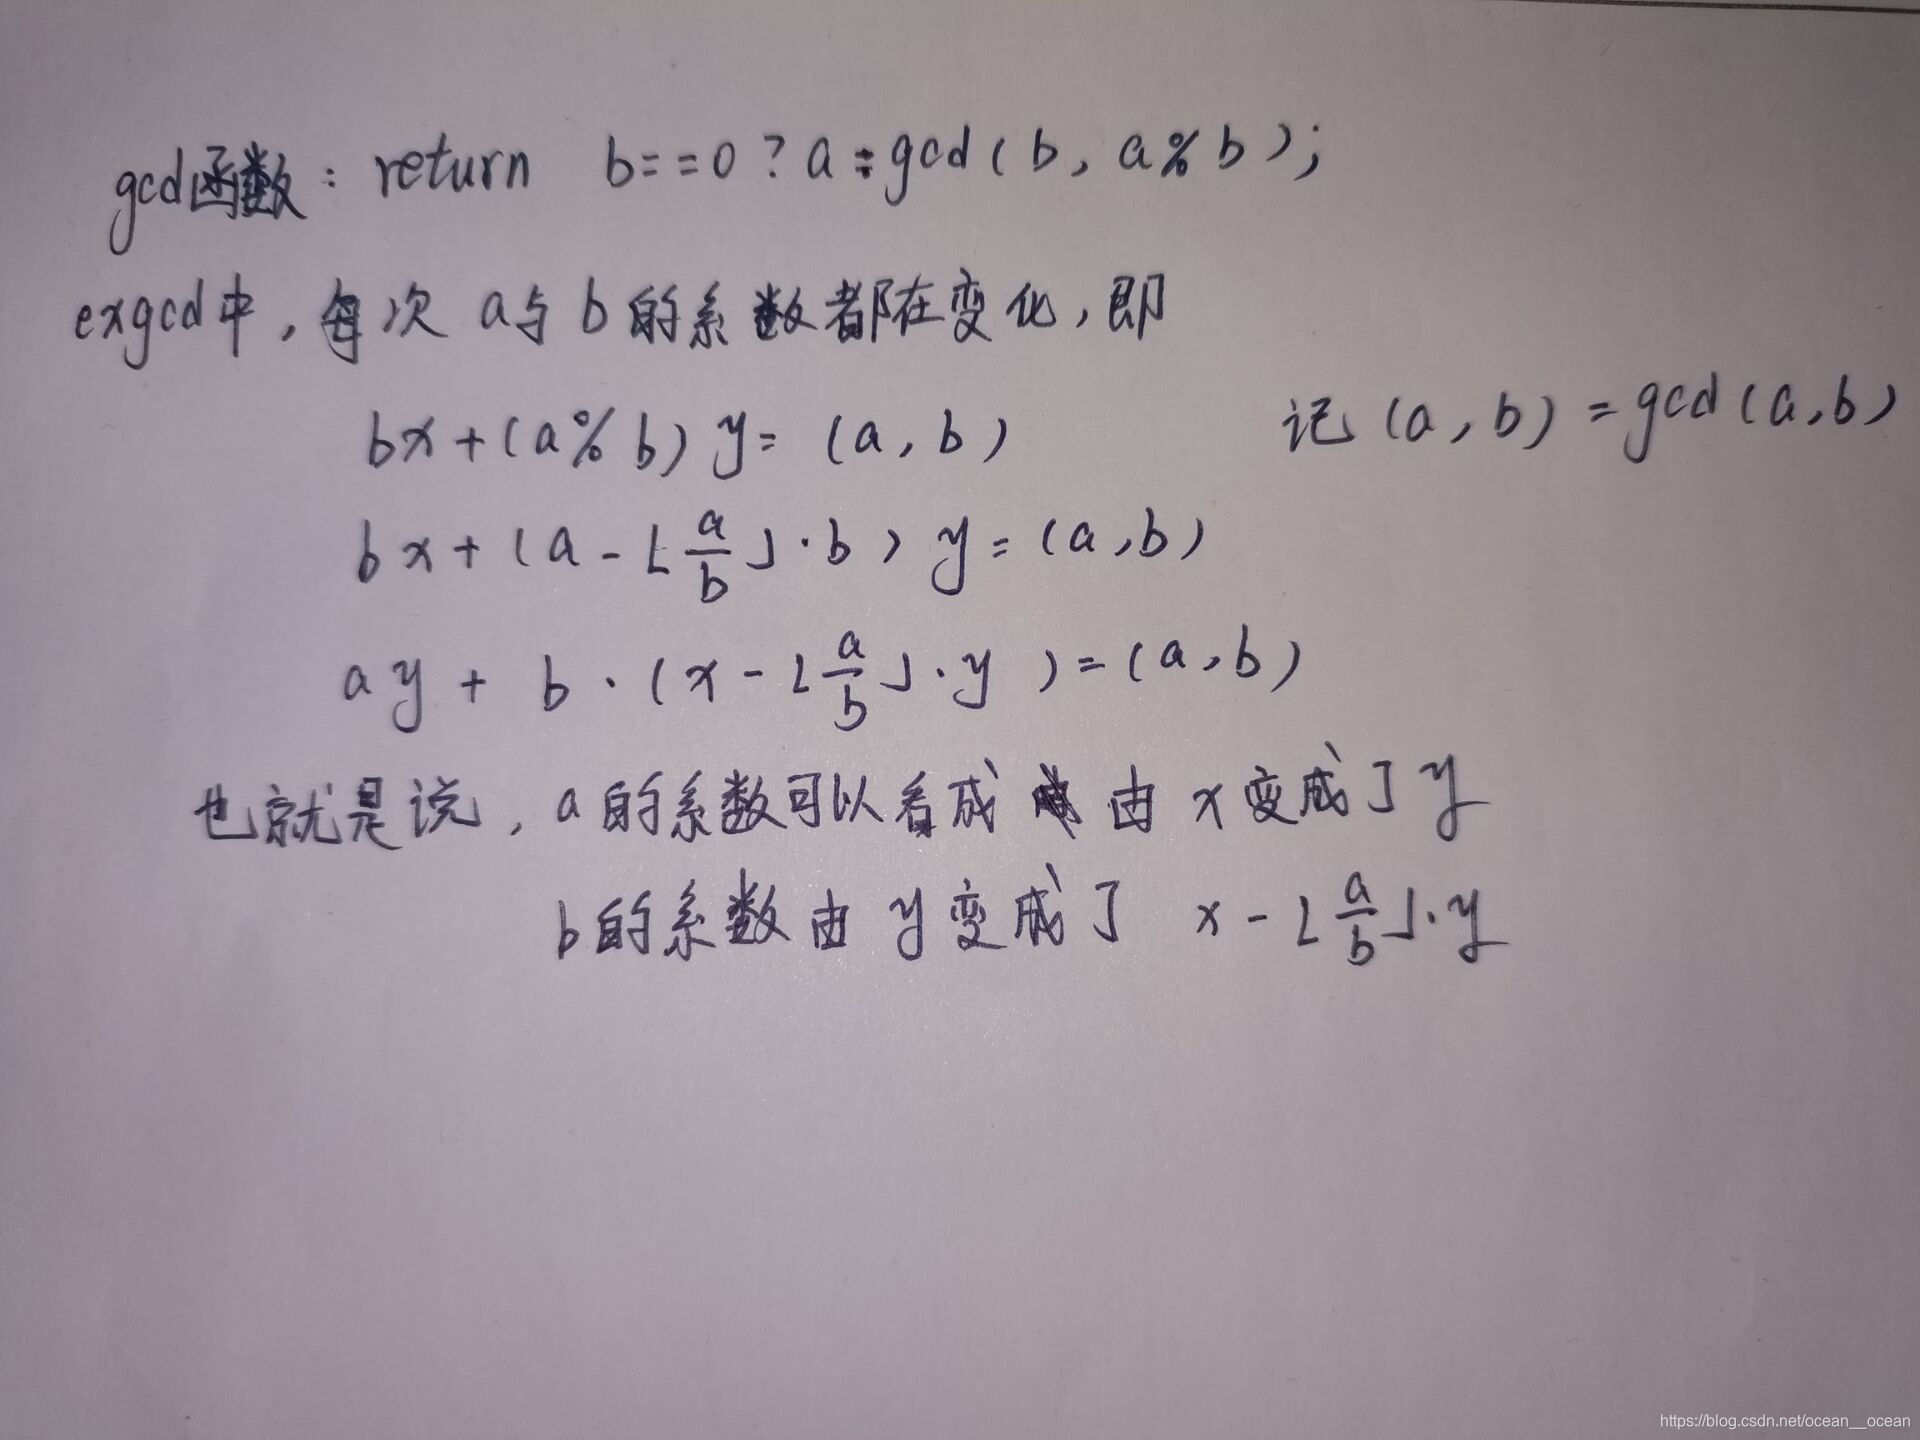 gcd函数: return b==0?a:gcd(b, a%b);
exgcd中,每次 a与b的系数都在变化,即
bx+(a%b)y=(a,b)
记(a,b)=gcd(a,b)
bx+(a-⌊a/b⌋·b)y=(a,b)
ay+b·(x-⌊a/b⌋·y)=(a,b)
也就是说,a的系数可以看成 由x变成了y
b的系数由y变成了 x-⌊a/b⌋·y
https://blog.csdn.net/ocean__ocean